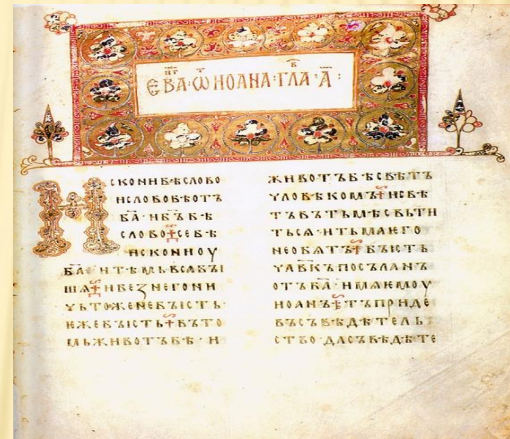 ЄВА ѾИОАНА ГЛА А҃
ИСКОНИБѢСЛОВО
ИСЛОВОБѢОТЪ
БА҃ ИБЪ҃БѢ
СЛОВО СЕБѢ
ИСКОНИОУ
БА҃ ИТѢМЬВСѦБЫ
ШѦ ИБЕЗНЕГОНИ
ЧЬТОЖЕНЕБЫСТЬ
ИЖЕБЫСТЬ ВЪТО
МЬЖИВОТЪБѢ И
ЖИВОТЪБѢСВѢТЪ
ЧЛОВѢКОМЪ ИСВѢ
ТЪВЪТЬМѢСВЬТИ
ТЬСѦ ИТЬМАѤГО
НЕОБѦТЪ БЫСТЬ
ЧЛ҃ВКЪПОСЪЛАНЪ
ОТЪБА҃ ИМѦѤМОУ
ИОАНЪ ТЪПРИДЕ
ВЪСЪВѢДѢТЕЛЬ
СТВО ДАСЪВѢДѢТЕ